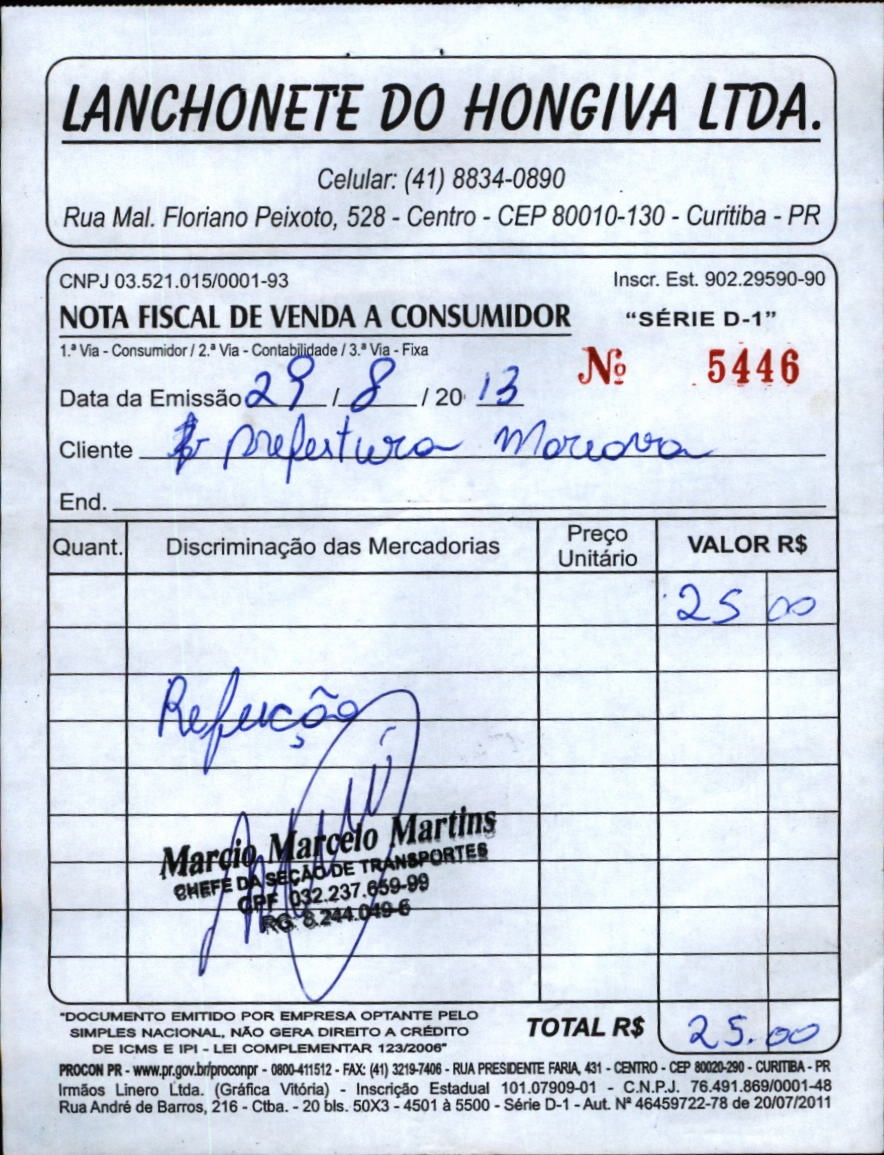 LANCHONETE DO HONGIVA LTDA.
Celular: (41) 8834-0890
Rua Mal. Floriano Peixoto, 528 - Centro - CEP 80010-130 - Curitiba - PR
CNPJ 03.521.015/0001-93 Inscr. Est. 902.29590-90
NOTA FISCAL DE VENDA A CONSUMIDOR "SÉRIE D-1"
1.ª Via - Consumidor / 2.ª Via - Contabilidade / 3.ª Via - Fixa
Nº 5446
Data da Emissão 29 / 8 / 20 13
Cliente prefeitura
End.
Quant. Discriminação das Mercadorias Preço Unitário VALOR R$
25 00
Refeição
Marcio Marcelo Martins
CHEFE DA SEÇÃO DE TRANSPORTES
CPF 032.237.659-99
RG. 8.244.049-6
"DOCUMENTO EMITIDO POR EMPRESA OPTANTE PELO
SIMPLES NACIONAL, NÃO GERA DIREITO A CRÉDITO
DE ICMS E IPI - LEI COMPLEMENTAR 123/2006"
TOTAL R$ 25.00
PROCON PR - www.pr.gov.br/proconpr - 0800-411512 - FAX: (41) 3219-7406 - RUA PRESIDENTE FARIA, 431 - CENTRO - CEP 80020-290 - CURITIBA - PR
Irmãos Linero Ltda. (Gráfica Vitória) - Inscrição Estadual 101.07909-01 - C.N.P.J. 76.491.869/0001-48
Rua André de Barros, 216 - Ctba. - 20 bls. 50X3 - 4501 à 5500 - Série D-1 - Aut. Nº 46459722-78 de 20/07/2011